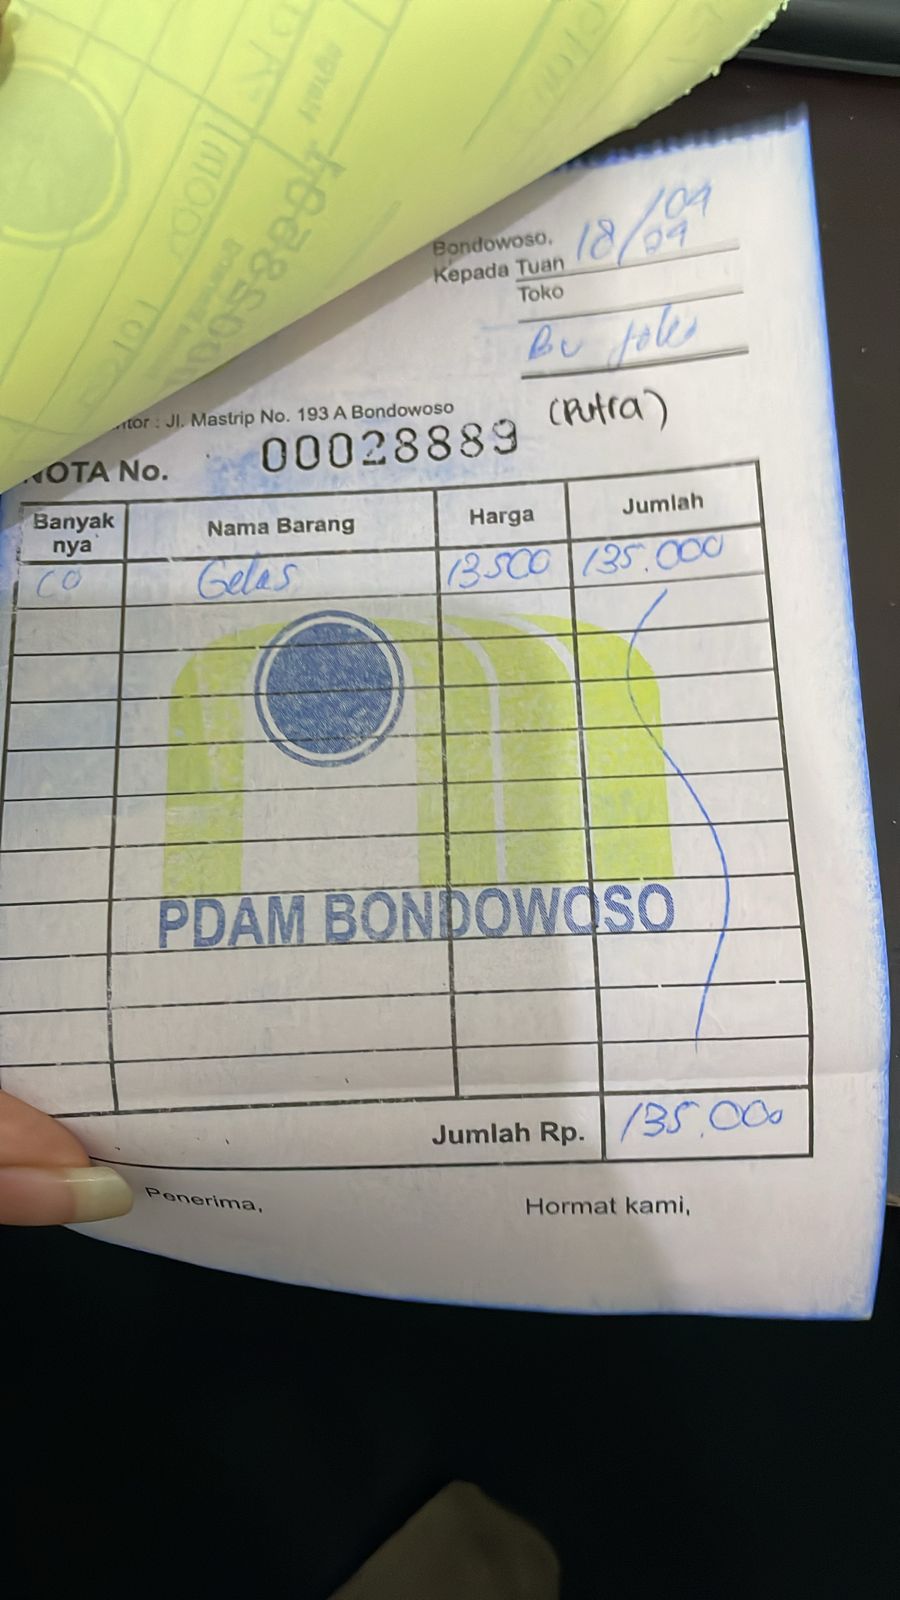 Bondowoso, 18/04
Kepada Tuan 04
Toko
Bu
ntor : Jl. Mastrip No. 193 A Bondowoso
(Putra)
NOTA No. 00028889
Banyak nya Nama Barang Harga Jumlah
Gelas 13500 135.000
PDAM BONDOWOSO
Jumlah Rp. 135.000
Penerima, Hormat kami,